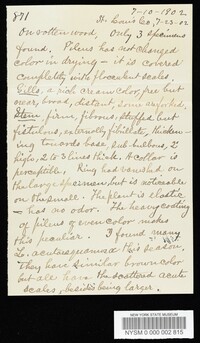 871
7-10-1902
St. Louis Co, 7-23-02
On rotten wood, Only 3 specimens
found. Pileus has not changed
color in drying - it is covered
completely with flocculent scales.
Gills, a rich cream color, free but
near, broad, distant, some are forked.
Stem, firm, fibrous, stuffed but
fistulous, externally fibrillate, thicken-
ing towards base, sub-bulbous, 2
high, 2 to 3 lines thick. A collar is
perceptible. Ring had vanished on
the large specimen, but is noticeable
on the small. The plant is elastic
- has no odor. The heavy coating
of pileus of even color makes
this peculiar. I found many
L. acutesquamosa this season.
They have similar brown color
but all have the scattered acute
scales, besides being larger.
NEW YORK STATE MUSEUM
NYSM 0 000 002 815